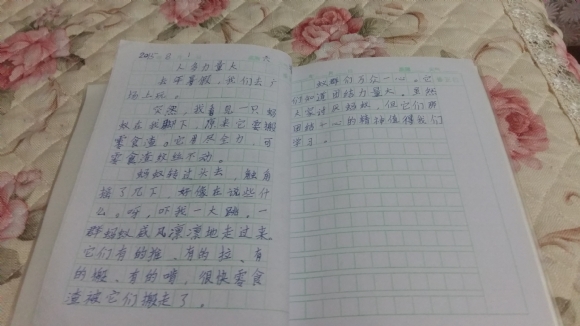 2015.
人多力量大
去年暑假，我们去广
场上玩。
突然，我看见一只蚂
蚁在我脚下，原来它要搬
零食渣。它用尽全力，可
零食渣纹丝不动。
蚂蚁转过头去，触角
摇了几下，好像在说些什
么。呀，吓我一大跳，一
群蚂蚁威风凛凛地走过来
它们有的推、有的拉、有
的搬、有的啃，很快零食
渣被它们搬走了。
蚁群们万众一心。它
们知道团结力量大。虽然
大家讨厌蚂蚁，但它们那
团结一心的精神值得我们
学习。